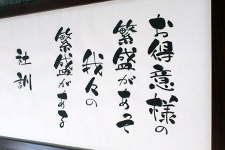 お得意様の
繁盛があって
我々の
繁盛がある
社訓